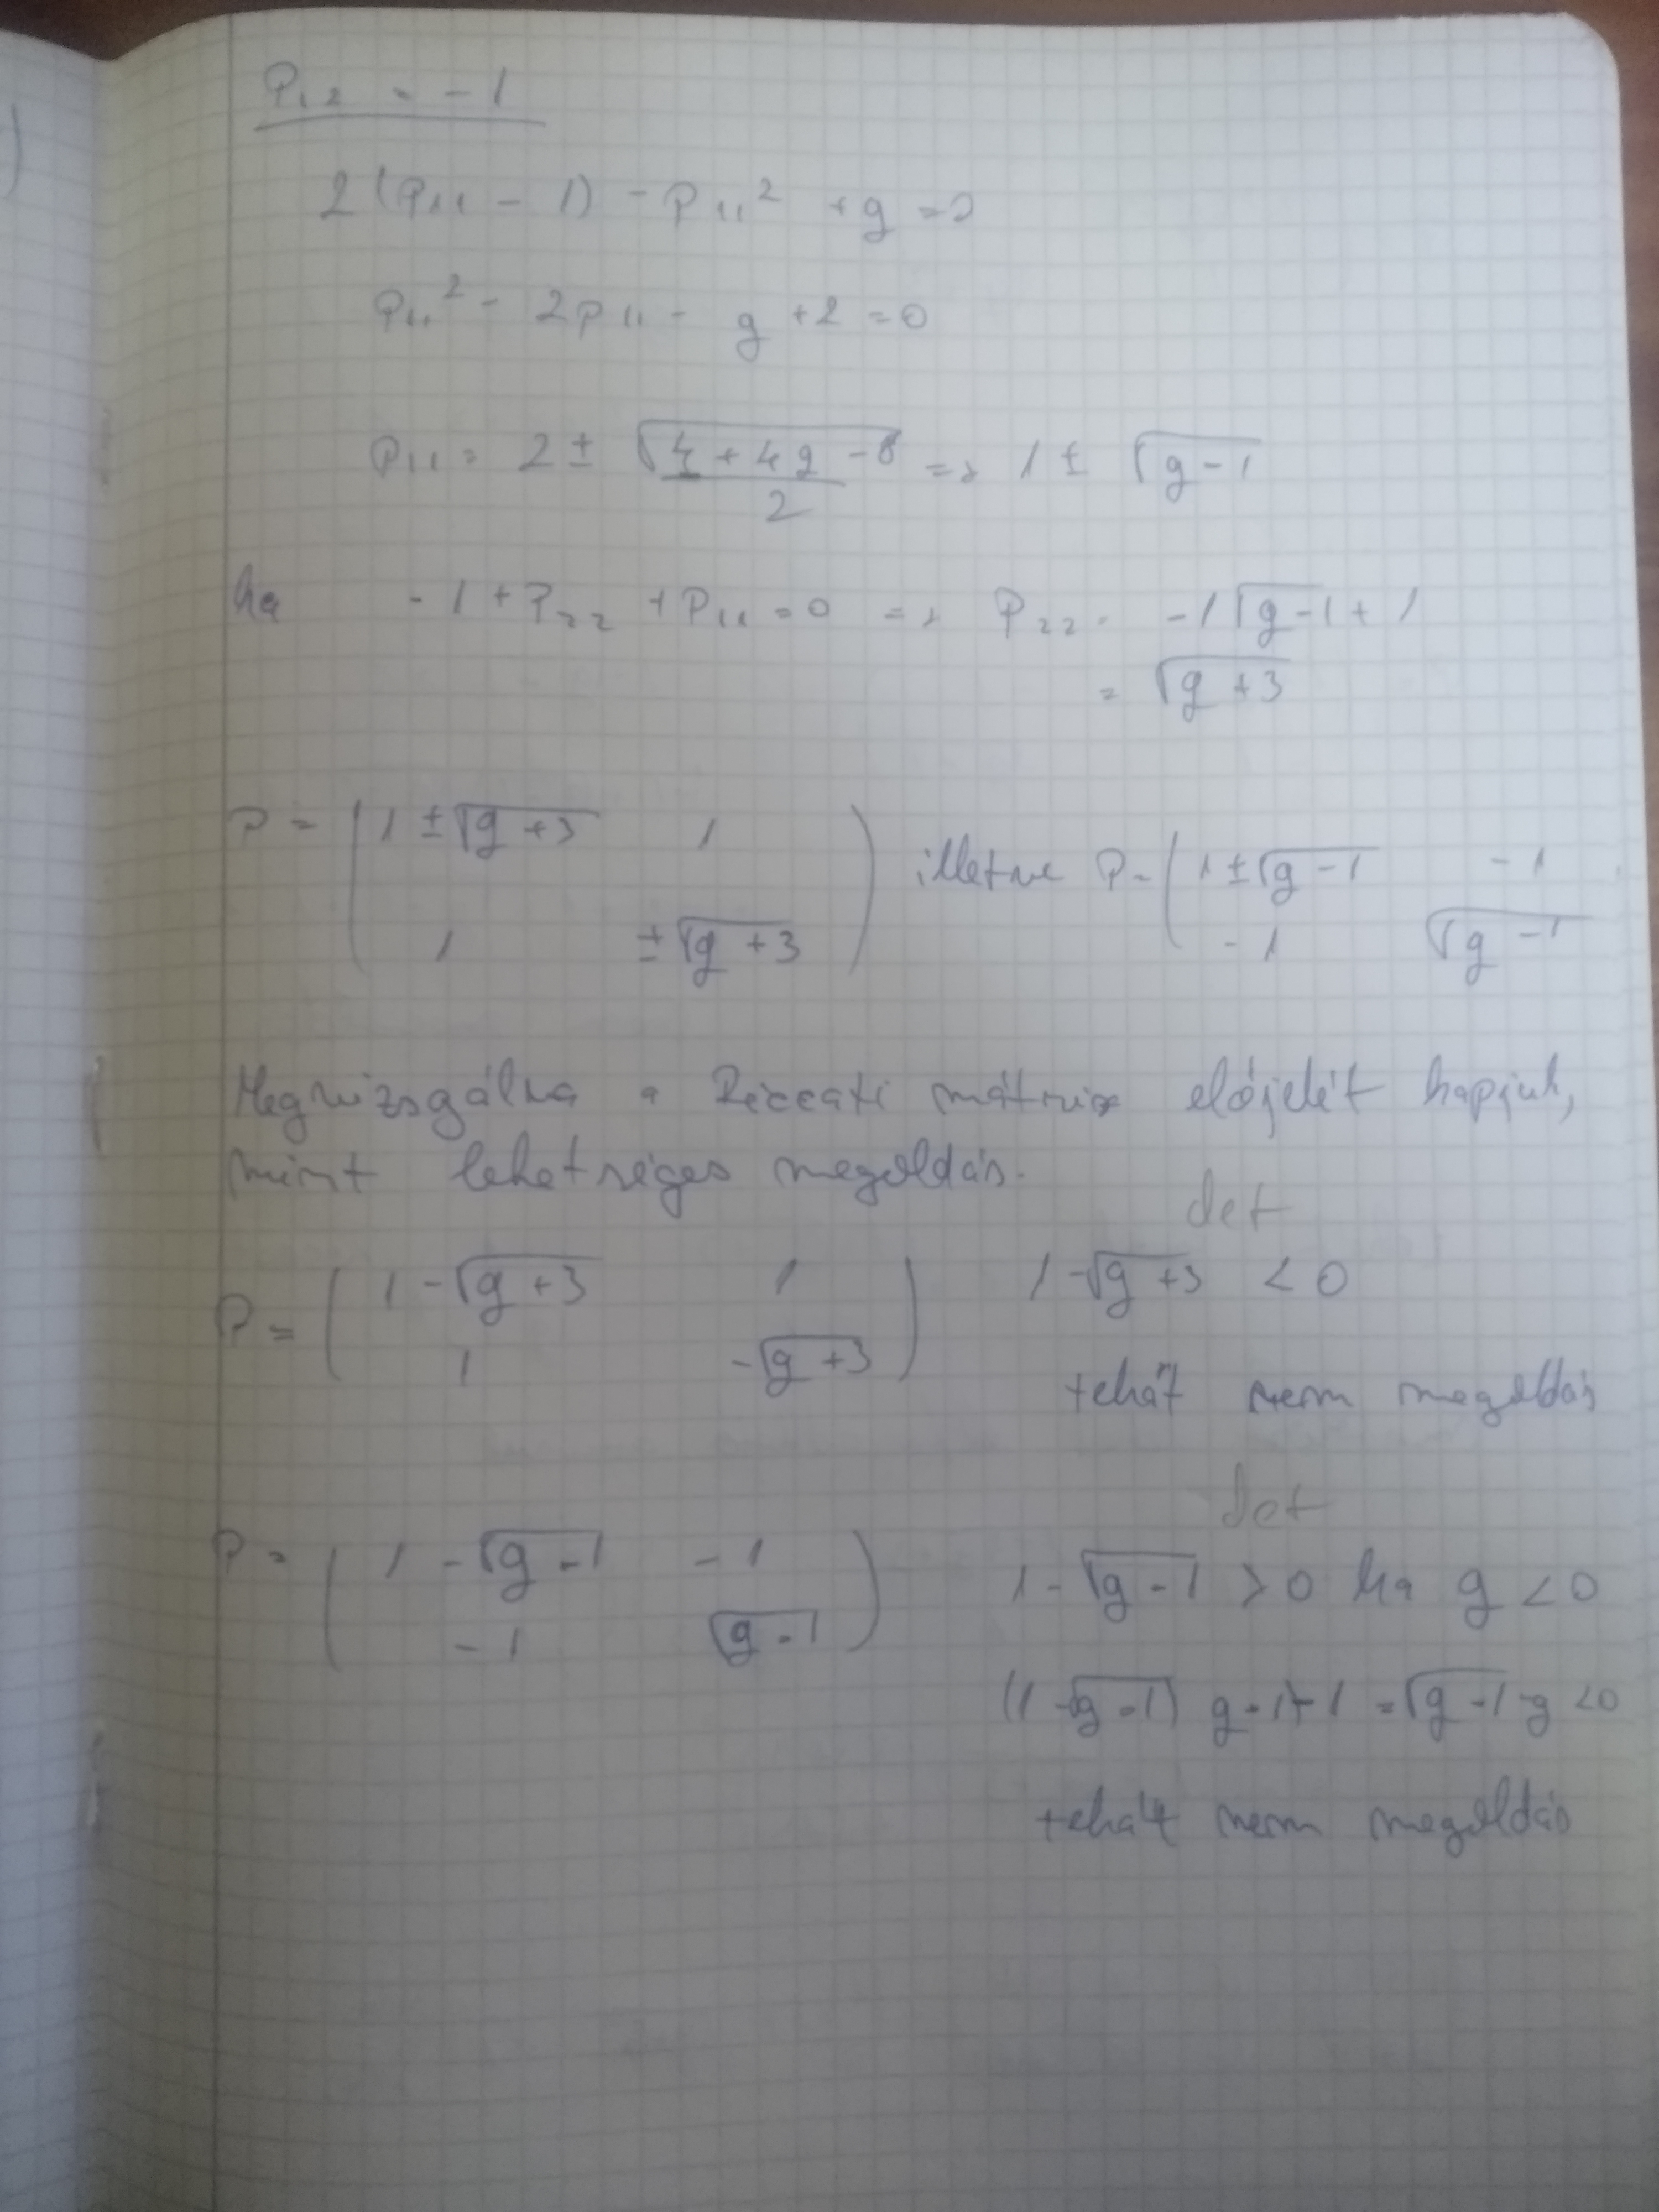 P₁₂ = -1
2(P₁₁ - 1) - P₁₁² + g = 0
P₁₁² - 2P₁₁ - g + 2 = 0
P₁₁ = 2 ± √(4 + 4g - 8) / 2 => 1 ± √(g-1)
ha -1 + P₂₂ + P₁₁ = 0 => P₂₂ = -1√(g-1) + 1
= √(g+3)
P = ( 1 ± √(g+3) 1 ) illetve P = ( 1 ± √(g-1) -1
1 ± √(g+3) -1 √(g-1)
Megvizsgálva a Riccati mátrix előjelét kapjuk,
mint lehetséges megoldás.
det
P = ( 1 - √(g+3) 1 ) 1 - √(g+3) < 0
1 -√(g+3)
tehát nem megoldás
det
P = ( 1 - √(g-1) -1 ) 1 - √(g-1) > 0 ha g < 0
-1 √(g-1)
(1 - √(g-1)) g-1)-1 = √(g-1) - g < 0
tehát nem megoldás